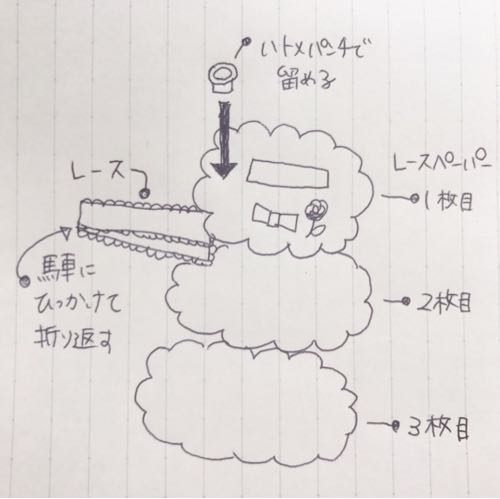 ハトメパンチで
留める
レース
レースペーパー
1枚目
馬車に
ひっかけて
折り返す
2枚目
3枚目